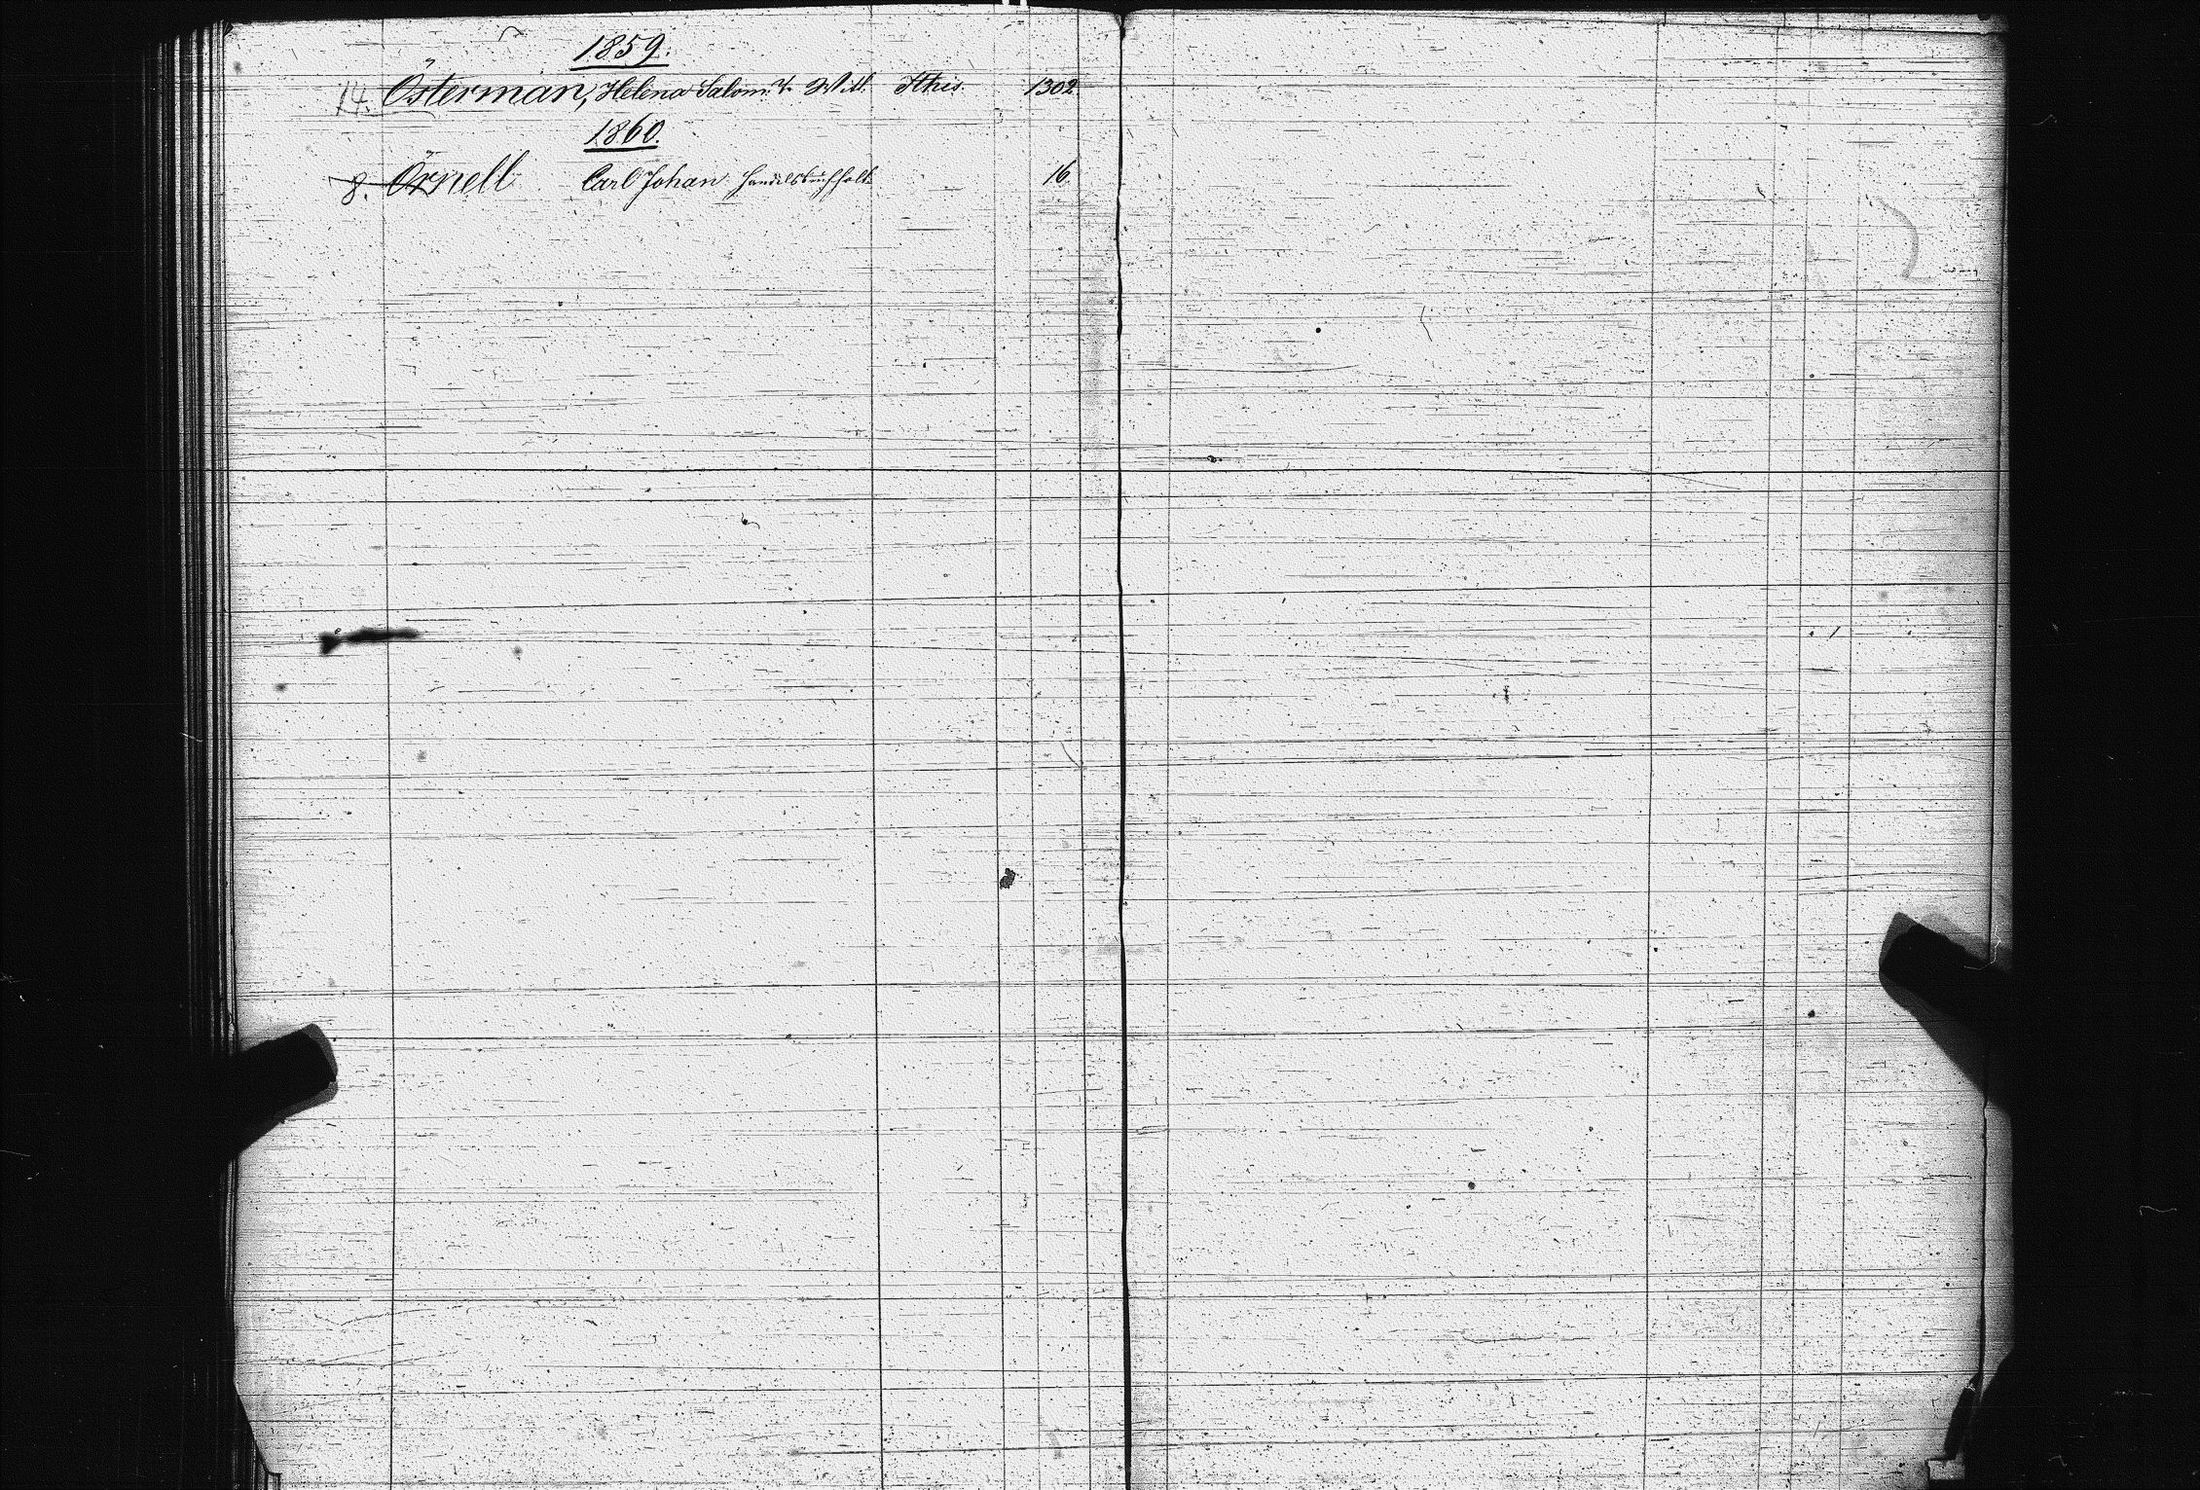 1859.
14. Österman, Helena Salom. Sthis. 1302
1860.
8. Örnell Carl Johan Handelsbokhåll. 16